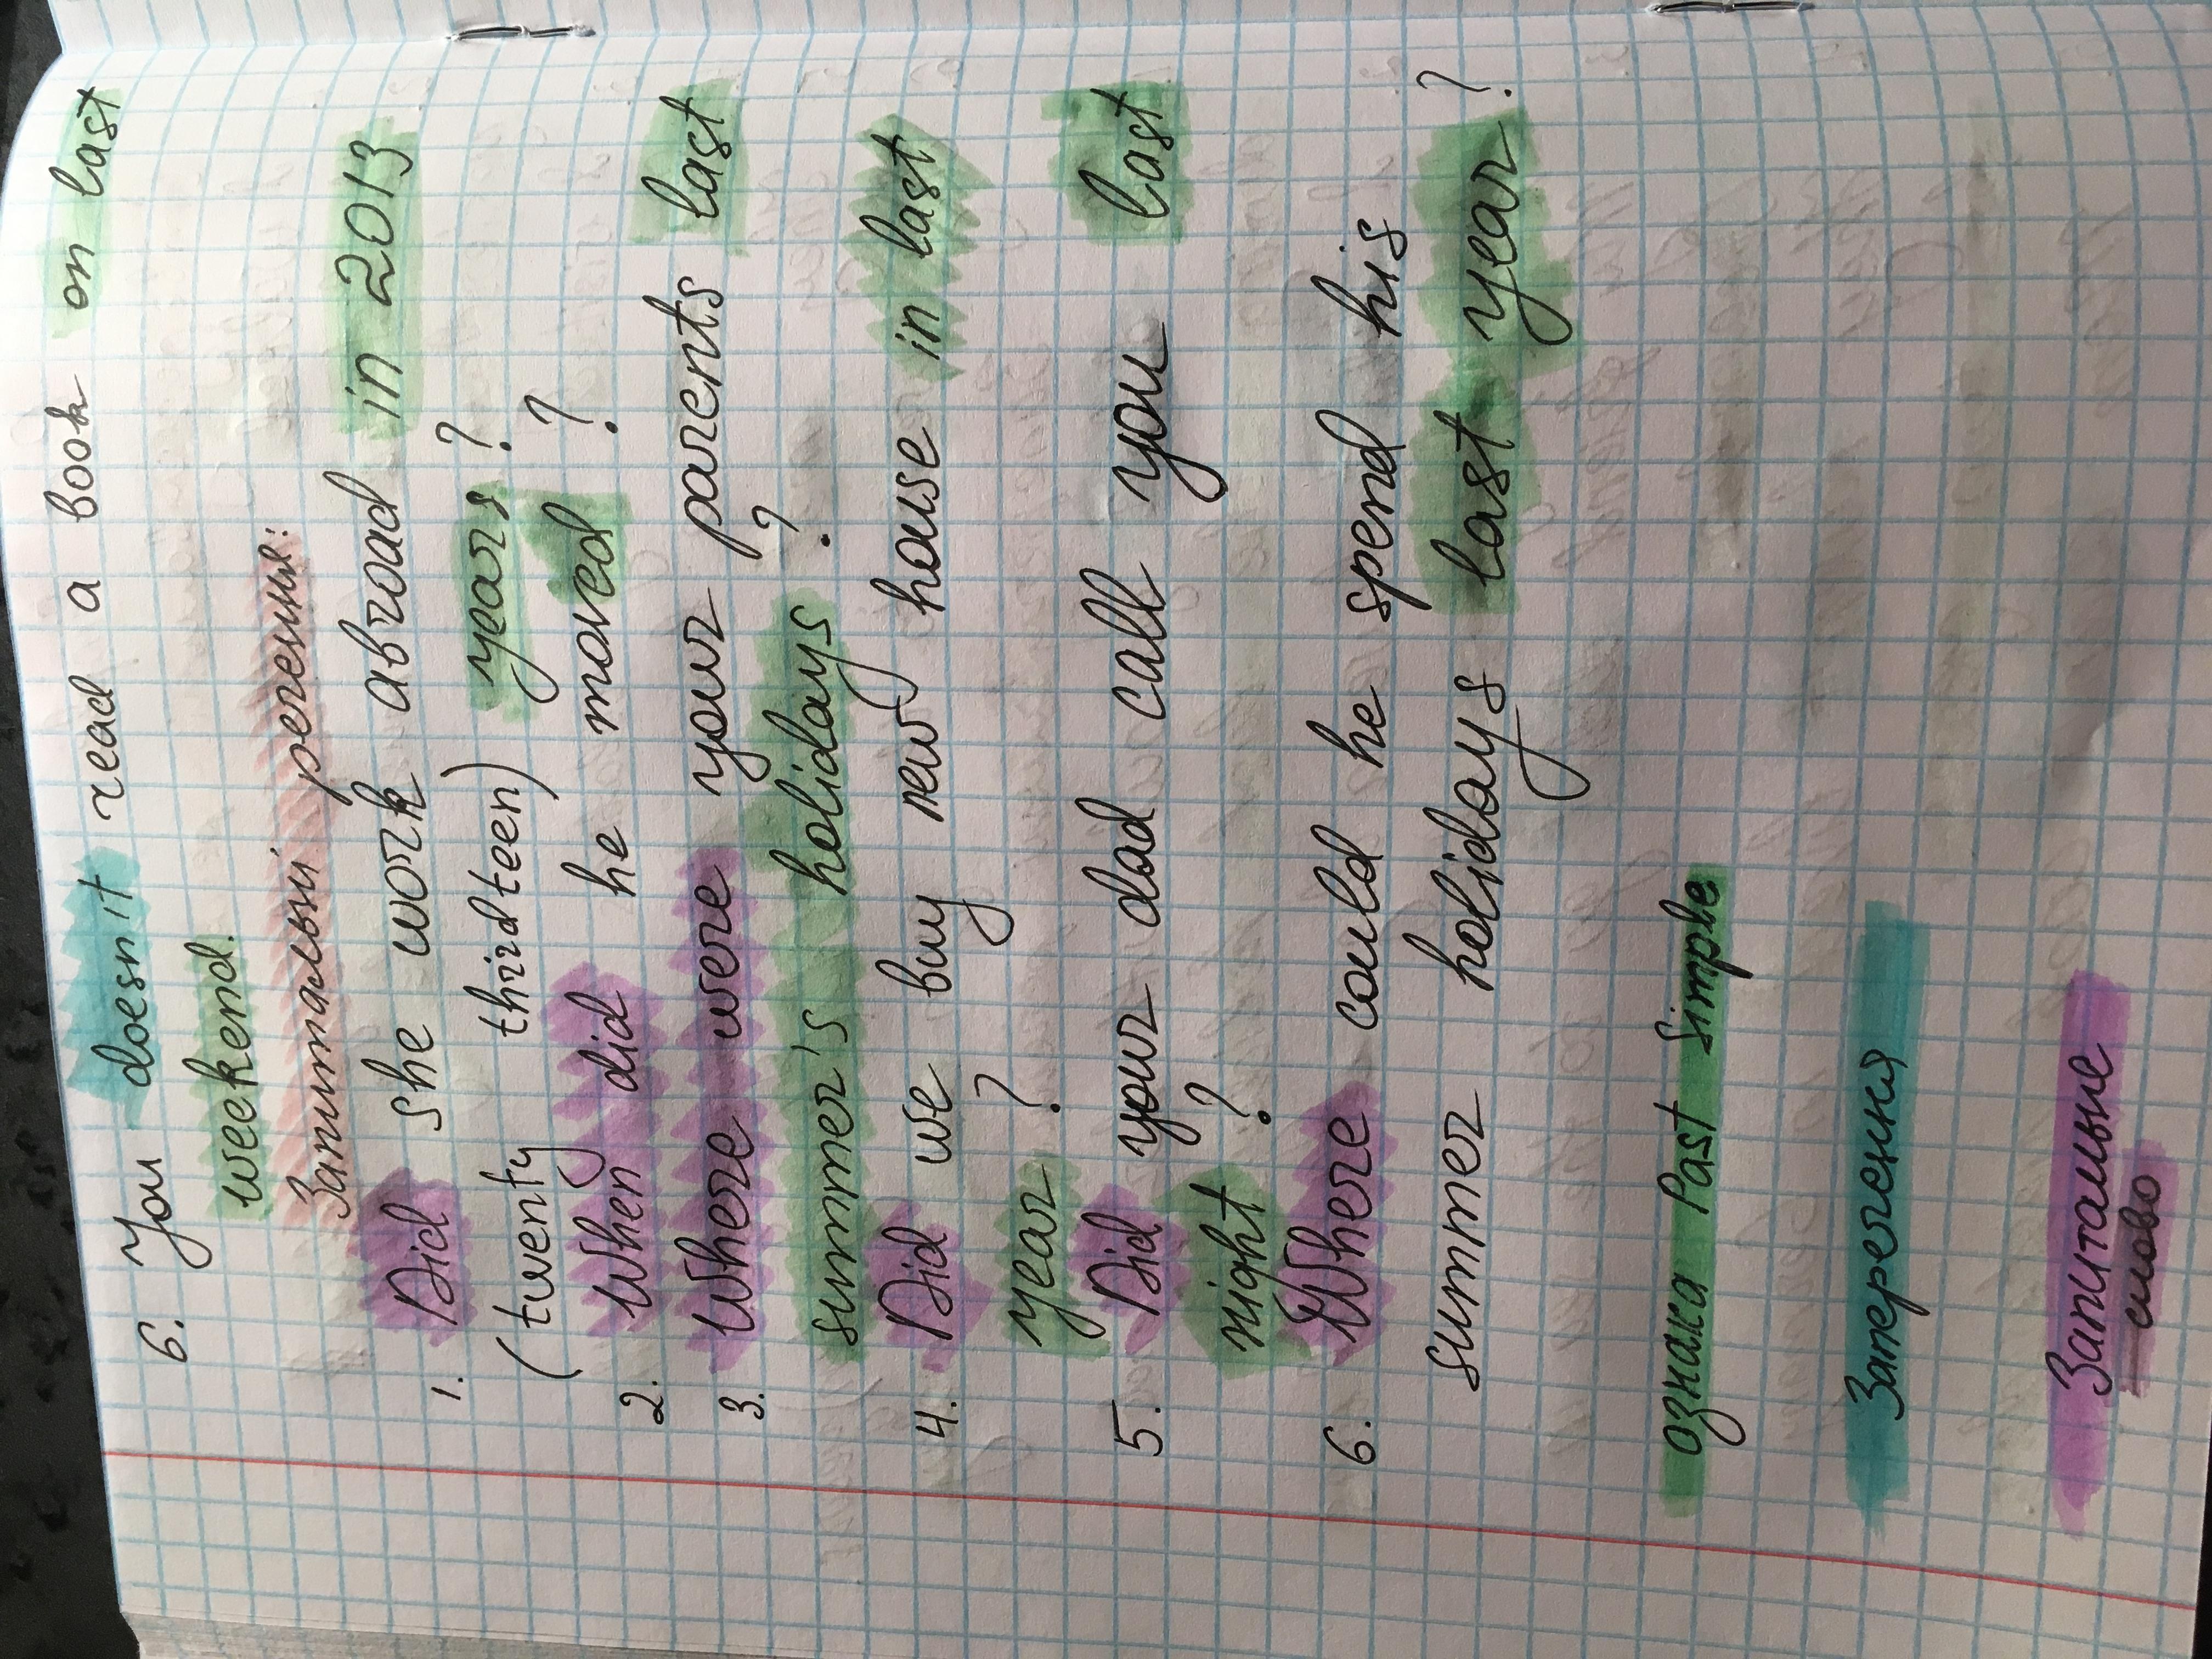 6. You doesn't read a book on last
weekend.
Запитальні речення:
1. Did she work abroad in 2013
(twenty thirdteen) years?
2. When did he moved ?
3. Where were your parents last
summer's holidays ?
4. Did we buy new house in last
year ?
5. Did your dad call you last
night ?
6. Where could he spend his
summer holidays last year ?
ознака Past Simple
Заперечення
Запитальне
слово